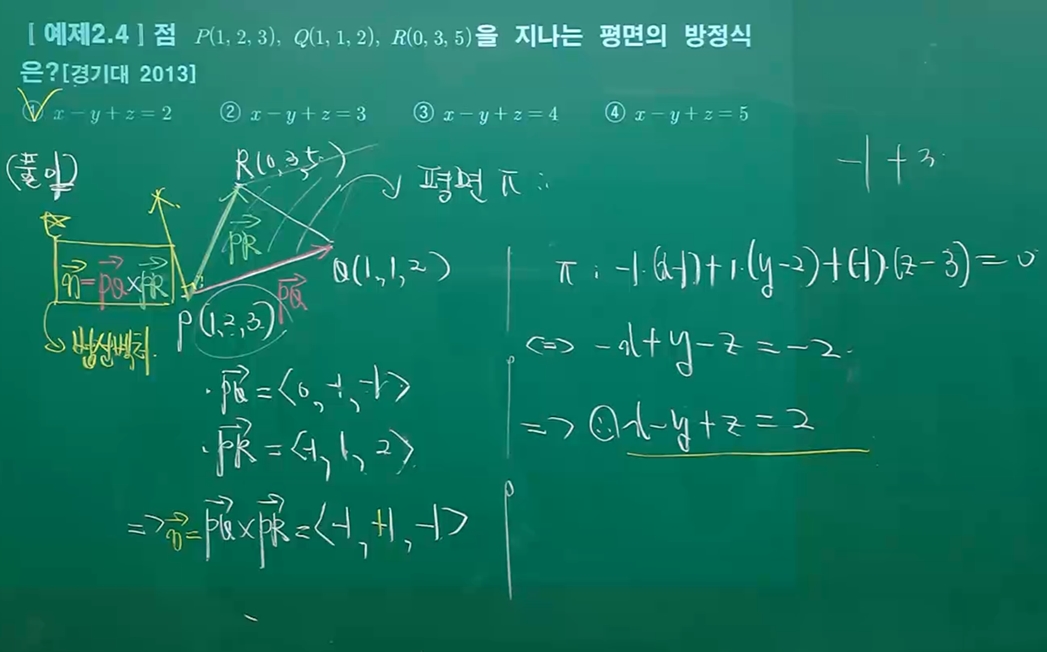 [ 예제2.4 ] 점 P(1, 2, 3), Q(1, 1, 2), R(0, 3, 5)을 지나는 평면의 방정식
은?[경기대 2013]
① x − y + z = 2 ② x − y + z = 3 ③ x − y + z = 4 ④ x − y + z = 5
(풀이)
R(0,3,5)
평면 π :
PR
Q(1,1,2)
n = PQ × PR
PQ
P(1,2,3)
법선벡터
· PQ = <0, -1, -1>
· PR = <-1, 1, 2>
=> n = PQ × PR = <-1, +1, -1>
-1 + 3
π : -1·(x-1)+1·(y-2)+(-1)·(z-3) = 0
<=> -x+y-z = -2
=> ∴ x-y+z = 2